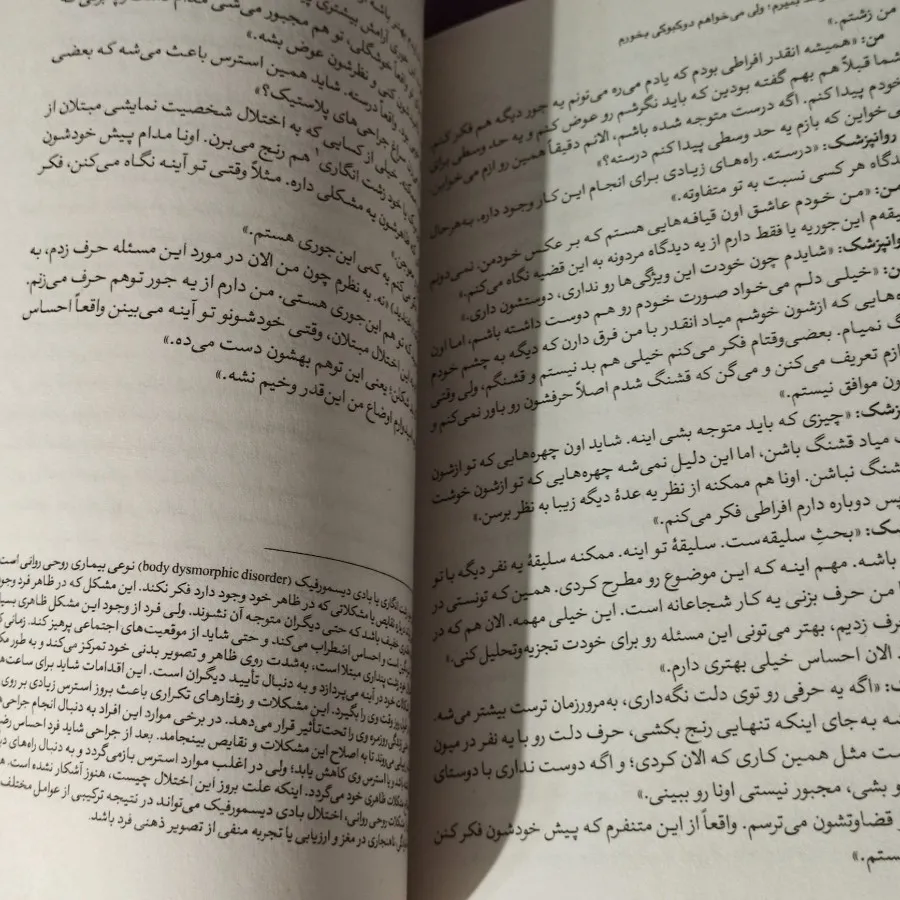 بمیرم؛ ولی می‌خواهم دوکبوکی بخورم
من زشتم.»
من: «همیشه انقدر افراطی بودم که یادم می‌ره می‌تونم یه جور دیگه هم فکر کنم
شما قبلاً هم بهم گفته بودین که باید نگرشم رو عوض کنم و یه حد وسطی برای
خودم پیدا کنم. اگه درست متوجه شده باشم، الانم دقیقاً همین رو ازم می‌خواین
می‌خواین که بازم یه حد وسطی پیدا کنم درسته؟»
روانپزشک: «درسته. راه‌های زیادی برای انجام این کار وجود داره. به‌هرحال
دیدگاه هر کسی نسبت به تو متفاوته.»
من: «من خودم عاشق اون قیافه‌هایی هستم که بر عکس خودمن. نمی‌دونم
سلیقه‌م این‌جوریه یا فقط دارم از یه دیدگاه مردونه به این قضیه نگاه می‌کنم.»
روانپزشک: «شایدم چون خودت این ویژگی‌ها رو نداری، دوستشون داری.»
من: «خیلی دلم می‌خواد صورت خودم رو هم دوست داشته باشم، اما اون
چهره‌هایی که ازشون خوشم میاد انقدر با من فرق دارن که دیگه به چشم خودم
قشنگ نمیام. بعضی‌وقتام فکر می‌کنم خیلی هم بد نیستم و قشنگم، ولی وقتی
ازم تعریف می‌کنن و می‌گن که قشنگ شدم اصلاً حرفشون رو باور نمی‌کنم و
موافق نیستم.»
روانپزشک: «چیزی که باید متوجه بشی اینه. شاید اون چهره‌هایی که تو ازشون
میاد قشنگ باشن، اما این دلیل نمی‌شه چهره‌هایی که تو ازشون خوشت
قشنگ نباشن. اونا هم ممکنه از نظر یه عدهٔ دیگه زیبا به نظر برسن.»
پس دوباره دارم افراطی فکر می‌کنم.»
روانپزشک: «بحثِ سلیقه‌ست. سلیقهٔ تو اینه. ممکنه سلیقهٔ یه نفر دیگه با تو
باشه. مهم اینه که این موضوع رو مطرح کردی. همین که تونستی در
من حرف بزنی یه کار شجاعانه است. این خیلی مهمه. الان هم که در
حرف زدیم، بهتر می‌تونی این مسئله رو برای خودت تجزیه‌وتحلیل کنی.»
الان احساس خیلی بهتری دارم.»
«اگه یه حرفی رو توی دلت نگه‌داری، به‌مرورزمان ترست بیشتر می‌شه.
به جای اینکه تنهایی رنج بکشی، حرف دلت رو با یه نفر در میون
مثل همین کاری که الان کردی؛ و اگه دوست نداری با دوستای
بشی، مجبور نیستی اونا رو ببینی.»
قضاوتشون می‌ترسم. واقعاً از این متنفرم که پیش خودشون فکر کنن
آرامش بیشتری
واقعاً خوشگلی، تو هم مجبور می‌شی مدام
کنی و نظرشون عوض بشه.»
واقعاً درسته. شاید همین استرس باعث می‌شه که بعضی
سراغ جراحی‌های پلاستیک؟»
خیلی از کسایی که به اختلال شخصیت نمایشی مبتلان از
خود زشت انگاری۱ هم رنج می‌برن. اونا مدام پیش خودشون
ظاهرشون یه مشکلی داره. مثلاً وقتی تو آینه نگاه می‌کنن، فکر
کنم یه کمی این‌جوری هستم.»
نه. به نظرم چون من الان در مورد این مسئله حرف زدم، به
تو هم این‌جوری هستی. من دارم از یه جور توهم حرف می‌زنم.
این اختلال مبتلان، وقتی خودشونو تو آینه می‌بینن واقعاً احساس
یعنی این توهم بهشون دست می‌ده.»
اوضاع من این‌قدر وخیم نشه.»
زشت انگاری یا بادی دیسمورفیک (body dysmorphic disorder) نوعی بیماری روحی روانی است
نقایص یا مشکلاتی که در ظاهر خود وجود دارد فکر نکند. این مشکل که در ظاهر فرد وجود
خفیف باشد که حتی دیگران متوجه آن نشوند. ولی فرد از وجود این مشکل ظاهری
است و احساس اضطراب می‌کند و حتی شاید از موقعیت‌های اجتماعی پرهیز کند. زمانی
زشت پنداری مبتلا است، به‌شدت روی ظاهر و تصویر بدنی خود تمرکز می‌کند و به طور
خود در آینه می‌پردازد و به دنبال تأیید دیگران است. این اقدامات شاید برای ساعت‌ها
روز وقت وی را بگیرد. این مشکلات و رفتارهای تکراری باعث بروز استرس زیادی بر روی
زندگی روزمره وی را تحت‌تأثیر قرار می‌دهد. در برخی موارد این افراد به دنبال انجام جراحی‌های
می‌روند تا به اصلاح این مشکلات و نقایص بینجامد. بعد از جراحی شاید فرد احساس
یا استرس وی کاهش یابد؛ ولی در اغلب موارد استرس بازمی‌گردد و به دنبال راه‌های
ظاهری خود می‌گردد. اینکه علت بروز این اختلال چیست، هنوز آشکار نشده است.
مشکلات روحی روانی، اختلال بادی دیسمورفیک می‌تواند در نتیجه ترکیبی از عوامل مختلف
ناهنجاری در مغز و ارزیابی یا تجربه منفی از تصویر ذهنی فرد باشد.